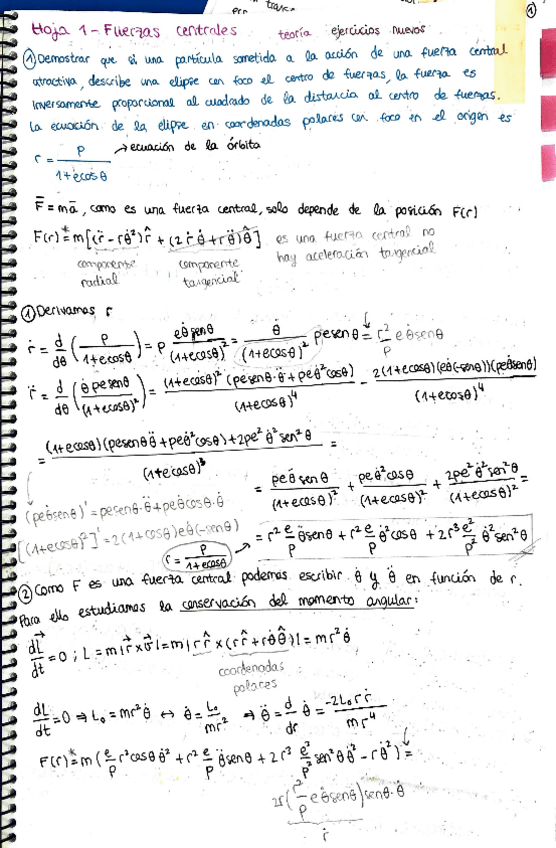 Hoja 1 - Fuerzas centrales teoría ejercicios nuevos
①
① Demostrar que si una partícula sometida a la acción de una fuerza central
atractiva, describe una elipse con foco el centro de fuerzas, la fuerza es
inversamente proporcional al cuadrado de la distancia al centro de fuerzas.
La ecuación de la elipse en coordenadas polares con foco en el origen es
r = p/(1+ecosθ) → ecuación de la órbita
F̄ = mā, como es una fuerza central, solo depende de la posición F(r)
F(r) =* m[(r̈ - rθ̇²)r̂ + (2ṙθ̇ + rθ̈)θ̂] es una fuerza central no
hay aceleración tangencial
componente radial componente tangencial
① Derivamos r
ṙ = d/dθ (p/(1+ecosθ)) = p eθ̇senθ/(1+ecosθ)² = θ̇/(1+ecosθ)² pesenθ = r²/p eθ̇senθ
r̈ = d/dθ (θ̇pesenθ/(1+ecosθ)²) = (1+ecosθ)²(pesenθ·θ̈+peθ̇²cosθ)/(1+ecosθ)⁴ - 2(1+ecosθ)(eθ̇(-senθ))(peθ̇senθ)/(1+ecosθ)⁴
= (1+ecosθ)(pesenθθ̈+peθ̇²cosθ)+2pe²θ̇²sen²θ/(1+ecosθ)³ =
= peθ̈senθ/(1+ecosθ)² + peθ̇²cosθ/(1+ecosθ)² + 2pe²θ̇²sen²θ/(1+ecosθ)³ =
(peθ̇senθ)' = pesenθ·θ̈+peθ̇cosθ·θ̇
[(1+ecosθ)²]' = 2(1+cosθ)eθ̇(-senθ)
r = p/(1+ecosθ) → = r² e/p θ̈senθ + r² e/p θ̇²cosθ + 2r³ e²/p² θ̇²sen²θ
② Como F es una fuerza central podemos escribir θ̇ y θ̈ en función de r.
Para ello estudiamos la conservación del momento angular:
dL⃗/dt = 0 ; L = m|r⃗×v⃗| = m|r r̂ × (ṙr̂ + rθ̇θ̂)| = mr²θ̇
coordenadas
polares
dL/dt = 0 ⇒ L₀ = mr²θ̇ ↔ θ̇ = L₀/mr² ⇒ θ̈ = d/dr θ̇ = -2L₀rṙ/mr⁴
F(r) =* m(e/p r²cosθθ̇² + r² e/p θ̈senθ + 2r³ e²/p² sen²θθ̇² - rθ̇²) =
2r(r²/p eθ̇senθ)senθ·θ̇
ṙ